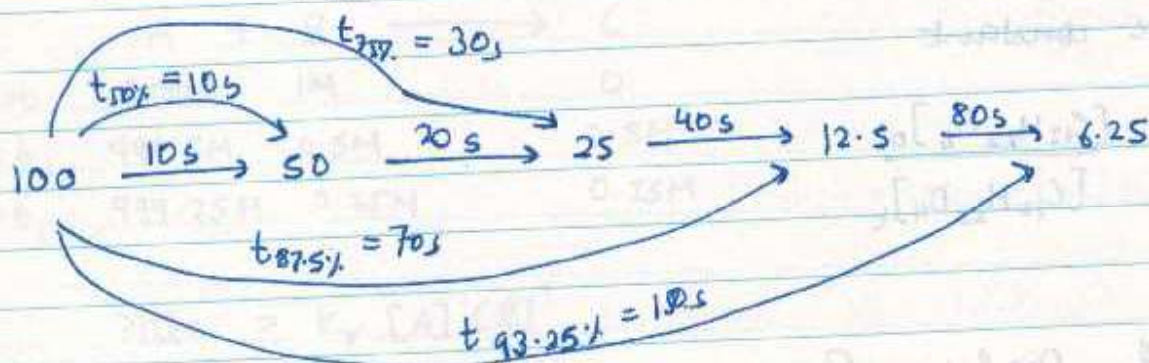 t75% = 30s
t50% = 10s
100 10s 50 20s 25 40s 12.5 80s 6.25
t87.5% = 70s
t 93.25% =